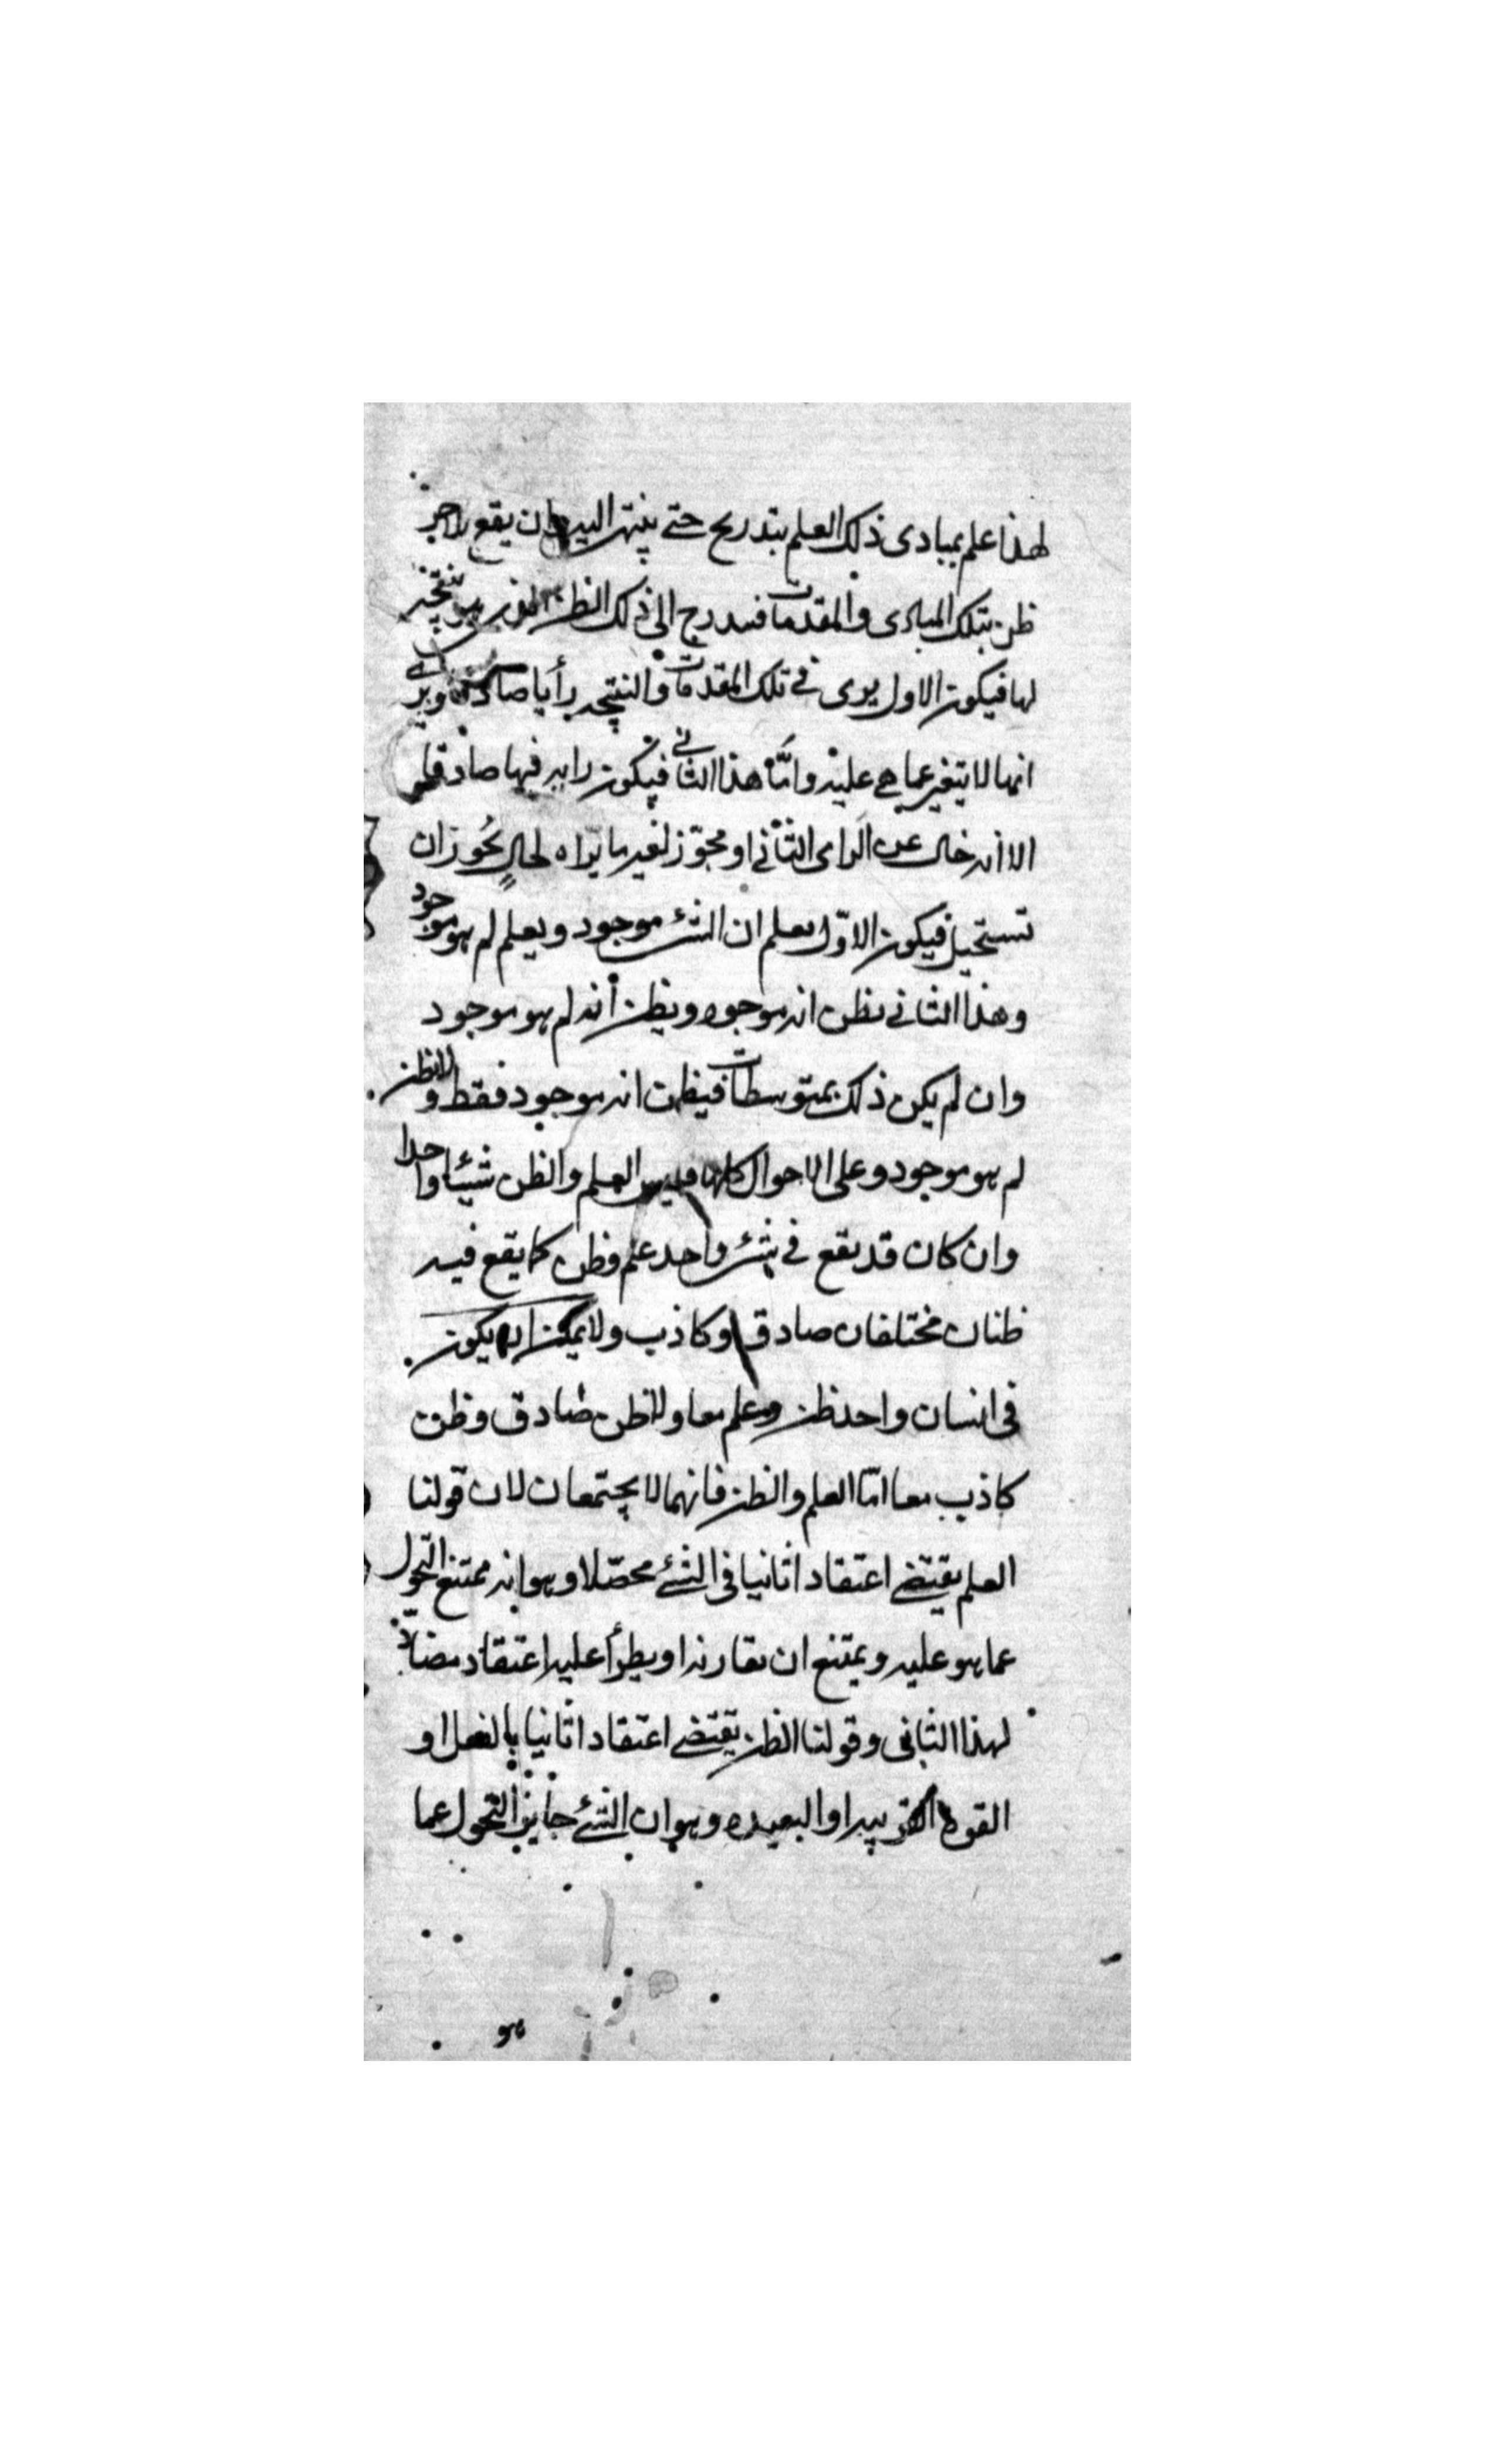 لهذا علم بمبادى ذلك العلم بتدريج حتى ينتهى اليه وان يقع لاخر
ظن بتلك المبادى والمقدمات فيتدرج الى ذلك الظن الذى هو نتيجة
لها فيكون الاول يرى فى تلك المقدمات والنتيجه رأيا صادقا ويرى
انها لا يتغير عما هى عليه وامّا هذا الثانى فيكون رايه فيها صادقا
الا انه خال عن الراى الثانى او مجوّز لغير ما يراه لحالٍ يُجوز ان
تستحيل فيكون الاوّل يعلم ان الشئ موجود ويعلم لم هو موجود
وهذا الثانى يظن انه موجود ويظن أنه لم هو موجود
وان لم يكن ذلك بمتوسطات فيظن انه موجود فقط ولا يظن
لم هو موجود وعلى الاحوال كلها فليس العلم والظن شيئا واحدا
وان كان قد يقع فى شئ واحد علم وظن كما يقع فيه
ظنان مختلفان صادق وكاذب ولا يمكن ان يكون
فى انسان واحد ظن وعلم معا ولا ظن صادق وظن
كاذب معا امّا العلم والظن فانهما لا يجتمعان لان قولنا
العلم يقتضى اعتقادا ثانيا فى الشئ محصّلا وهو انه ممتنع التحول
عما هو عليه ويمتنع ان يقارنه او يطرأ عليه اعتقاد مضادّ
لهذا الثانى وقولنا الظن يقتضى اعتقادا ثانيا بالفعل او
القوة القريبه او البعيده وهو ان الشئ جايز التحول عما
هو